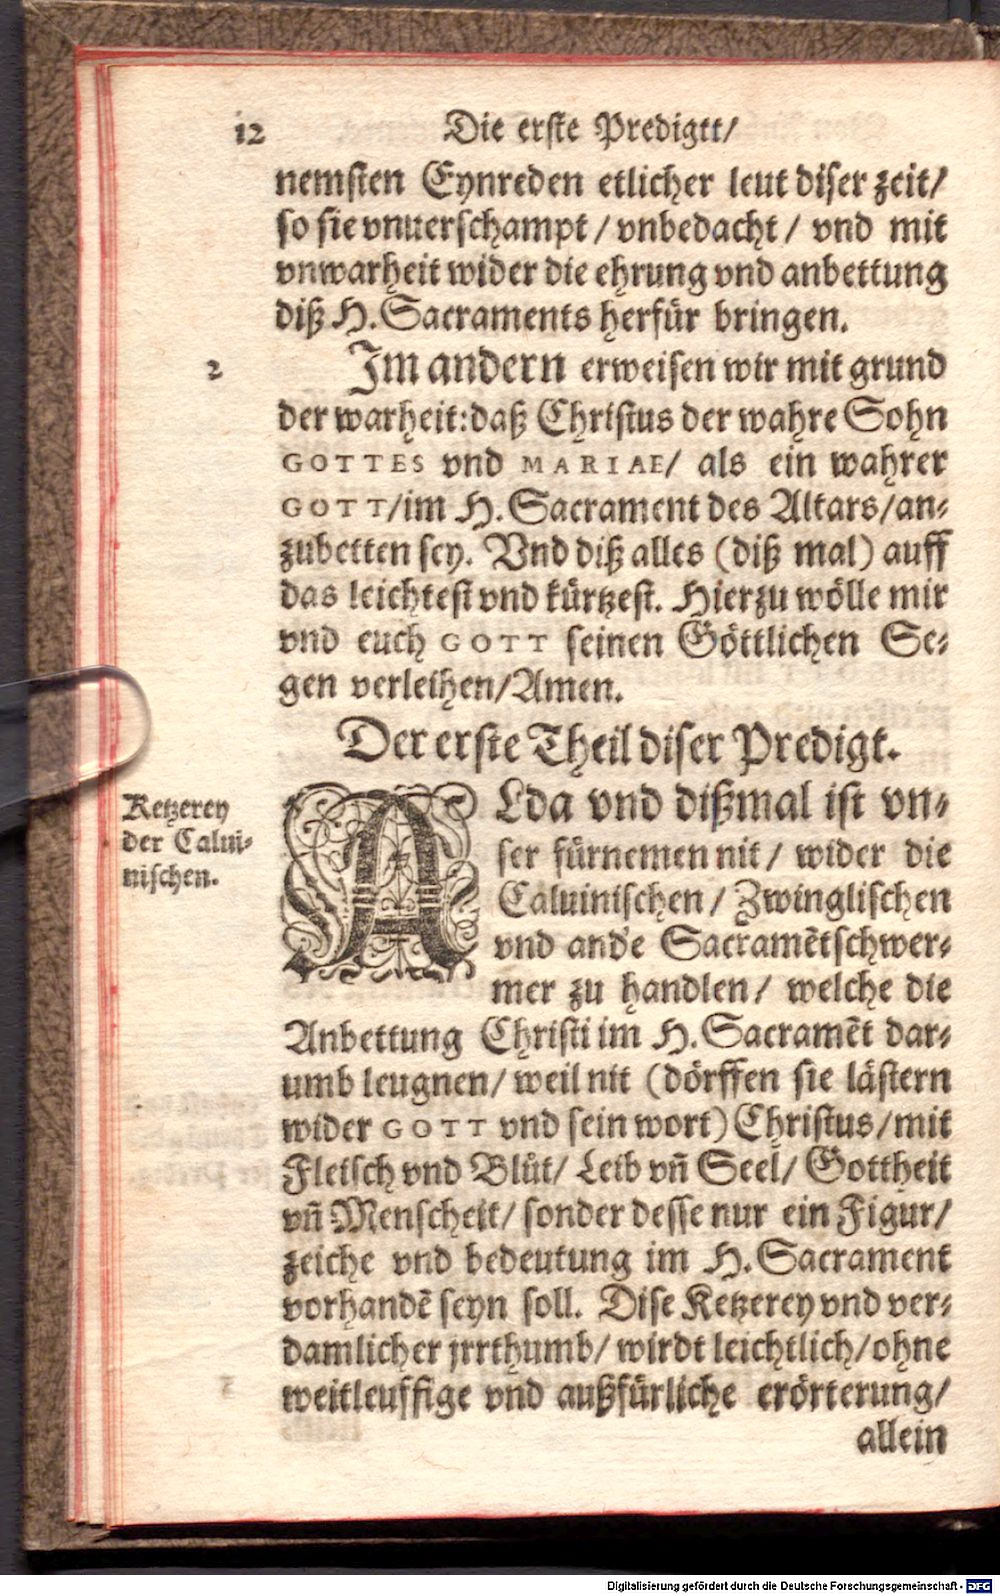 12 Die erste Predigtt/
nemsten Eynreden etlicher leut diser zeit/
so sie vnuerschampt / vnbedacht / vnd mit
vnwarheit wider die ehrung vnd anbettung
diß H. Sacraments herfür bringen.
2 Im andern erweisen wir mit grund
der warheit: daß Christus der wahre Sohn
GOTTES vnd MARIAE/ als ein wahrer
GOTT/im H. Sacrament des Altars/an⸗
zubetten sey. Vnd diß alles (diß mal) auff
das leichtest vnd kürtzest. Hierzu wölle mir
vnd euch GOTT seinen Göttlichen Se⸗
gen verleihen/Amen.
Der erste Theil diser Predigt.
Ketzerey
der Calui⸗
nischen.
ALda vnd dißmal ist vn⸗
ser fürnemen nit/ wider die
Caluinischen/ Zwinglischen
vnd and'e Sacramẽtschwer⸗
mer zu handlen/ welche die
Anbettung Christi im H. Sacramẽt dar⸗
umb leugnen/ weil nit (dörffen sie lästern
wider GOTT vnd sein wort) Christus/mit
Fleisch vnd Blůt/ Leib vñ Seel/ Gottheit
vñ Menscheit/ sonder desse nur ein Figur/
zeiche vnd bedeutung im H. Sacrament
vorhandẽ seyn soll. Dise Ketzerey vnd ver⸗
damlicher jrrthumb/ wirdt leichtlich/ohne
weitleuffige vnd außfürliche erörterung/
allein
Digitalisierung gefördert durch die Deutsche Forschungsgemeinschaft - DFG